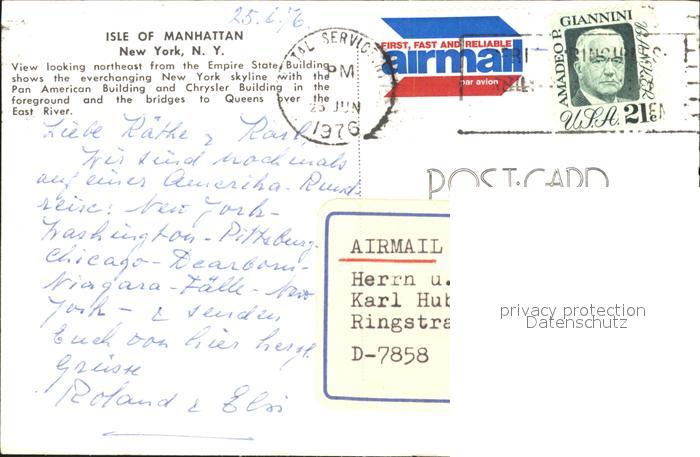 25.6.76.
ISLE OF MANHATTAN
New York, N. Y.
View looking northeast from the Empire State Building
shows the everchanging New York skyline with the
Pan American Building and Chrysler Building in the
foreground and the bridges to Queens over the
East River.
POSTAL SERVICE
PM
25 JUN
1976
FIRST, FAST AND RELIABLE
airmail
par avion
AMADEO P. GIANNINI
BANKER
U.S.A. 21c
Liebe Käthe & Karl,
Wir sind nochmals
auf einer Amerika-Rund-
reise: New York-
Washington-Pittsburg-
Chicago-Dearborn-
Niagara-Fälle-New
York- & senden
Euch von hier herzl.
Grüsse
Roland & Elsi
POST CARD
AIRMAIL
Herrn u.
Karl Hub
Ringstra
D-7858
privacy protection
Datenschutz